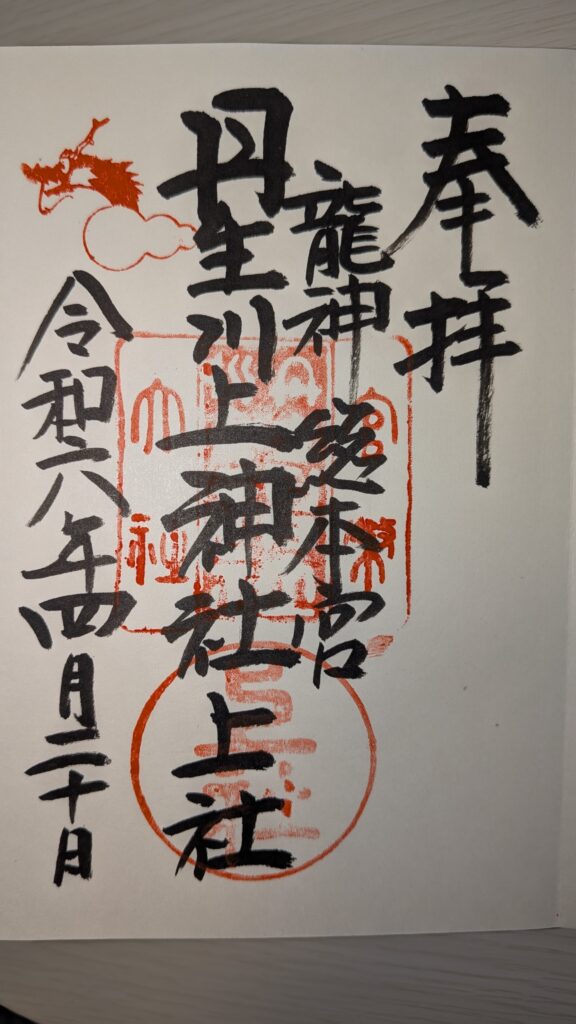 奉拝
龍神 総本宮
丹生川上神社上社
令和六年四月二十日